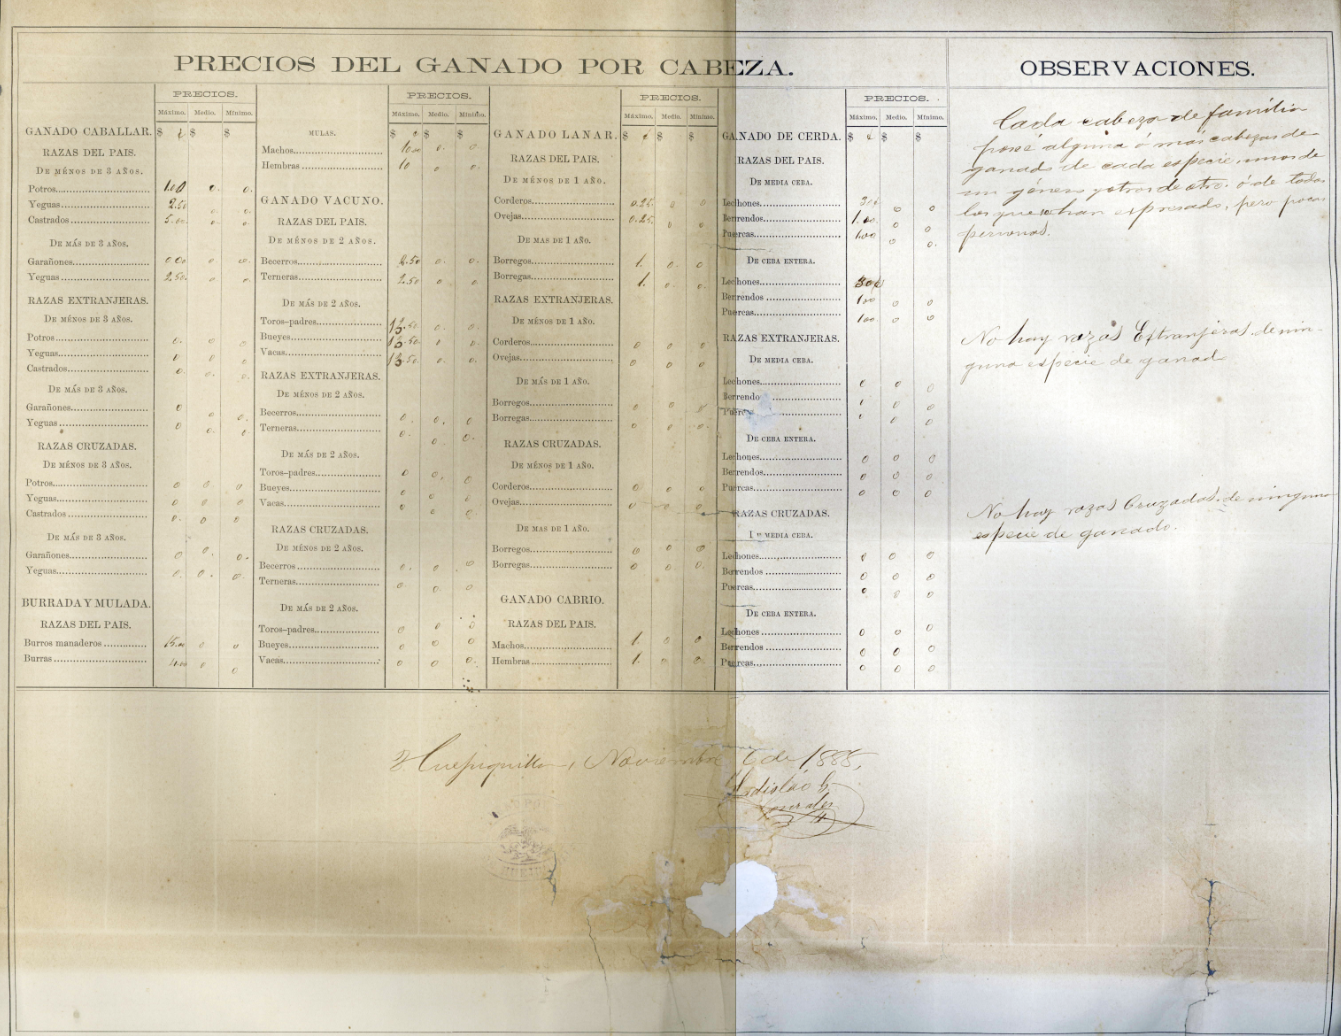 PRECIOS DEL GANADO POR CABEZA.
PRECIOS.
Máximo. Medio. Mínimo.
GANADO CABALLAR. $ $ $
RAZAS DEL PAIS.
DE MÉNOS DE 3 AÑOS.
Potros 0. 0.
Yeguas 2.50 0 0.
Castrados 0. 0.
DE MÁS DE 3 AÑOS.
Garañones 0 0.
Yeguas 2.50 0 0.
RAZAS EXTRANJERAS.
DE MÉNOS DE 3 AÑOS.
Potros 0. 0 0
Yeguas 0 0 0
Castrados 0. 0. 0.
DE MÁS DE 3 AÑOS.
Garañones 0 0 0
Yeguas 0 0. 0.
RAZAS CRUZADAS.
DE MÉNOS DE 3 AÑOS.
Potros 0 0 0
Yeguas 0 0 0
Castrados 0. 0 0
DE MÁS DE 3 AÑOS.
Garañones 0 0. 0.
Yeguas 0. 0. 0.
BURRADA Y MULADA.
RAZAS DEL PAIS.
Burros manaderos 15.00 0 0
Burras 4.00 0 0
PRECIOS.
Máximo. Medio. Mínimo.
MULAS. $ $ $
Machos 10.00 0. 0
Hembras 10 0. 0
GANADO VACUNO.
RAZAS DEL PAIS.
DE MÉNOS DE 2 AÑOS.
Becerros 0. 0.
Terneras 2.50 0. 0.
DE MÁS DE 2 AÑOS.
Toros-padres 0. 0.
Bueyes 0 0.
Vacas 0. 0.
RAZAS EXTRANJERAS.
DE MÉNOS DE 2 AÑOS.
Becerros 0. 0. 0
Terneras 0. 0. 0.
DE MÁS DE 2 AÑOS.
Toros-padres 0 0. 0
Bueyes 0 0 0
Vacas 0 0 0
RAZAS CRUZADAS.
DE MÉNOS DE 2 AÑOS.
Becerros 0. 0. 0
Terneras 0 0 0
DE MÁS DE 2 AÑOS.
Toros-padres 0 0 0
Bueyes 0 0 0
Vacas 0 0 0.
PRECIOS.
Máximo. Medio. Mínimo.
GANADO LANAR. $ $ $
RAZAS DEL PAIS.
DE MÉNOS DE 1 AÑO.
Corderos 0.25 0 0
Ovejas 0.25 0 0
DE MAS DE 1 AÑO.
Borregos 1. 0. 0
Borregas 1. 0. 0.
RAZAS EXTRANJERAS.
DE MÉNOS DE 1 AÑO.
Corderos 0 0 0
Ovejas 0 0 0
DE MÁS DE 1 AÑO.
Borregos 0 0
Borregas 0 0 0.
RAZAS CRUZADAS.
DE MÉNOS DE 1 AÑO.
Corderos 0 0 0
Ovejas 0 0
DE MAS DE 1 AÑO.
Borregos 0 0 0
Borregas 0 0 0.
GANADO CABRIO.
RAZAS DEL PAIS.
Machos 1. 0 0
Hembras 1. 0 0.
PRECIOS.
Máximo. Medio. Mínimo.
GANADO DE CERDA. $ $ $
RAZAS DEL PAIS.
DE MEDIA CEBA.
Lechones 0 0
Berrendos 1.00 0 0
Puercas 0 0.
DE CEBA ENTERA.
Lechones
Berrendos 1.00 0 0
Puercas 1.00 0 0
RAZAS EXTRANJERAS.
DE MEDIA CEBA.
Lechones 0 0 0
Berrendo 0 0
Puercas 0 0 0
DE CEBA ENTERA.
Lechones 0 0 0
Berrendos 0 0 0
Puercas 0 0 0
RAZAS CRUZADAS.
MEDIA CEBA.
Lechones 0 0 0
Berrendos 0 0 0
Puercas 0 0 0
DE CEBA ENTERA.
Lechones 0 0 0
Berrendos 0 0 0
Puercas 0 0 0
OBSERVACIONES.
Cada cabeza de familia
poseé alguna ó mas cabezas de
ganad de cada especie, unos de
un género y otros de otro, ó de todas
las que se han espresado, pero pocas
personas.
No hay razas Estranjeras de nin-
guna especie de ganad
No hay razas Cruzadas de ninguna
especie de ganado.
Huejuquilla, Noviembre 6 de 1885,
Ladislao G.
Gonzales